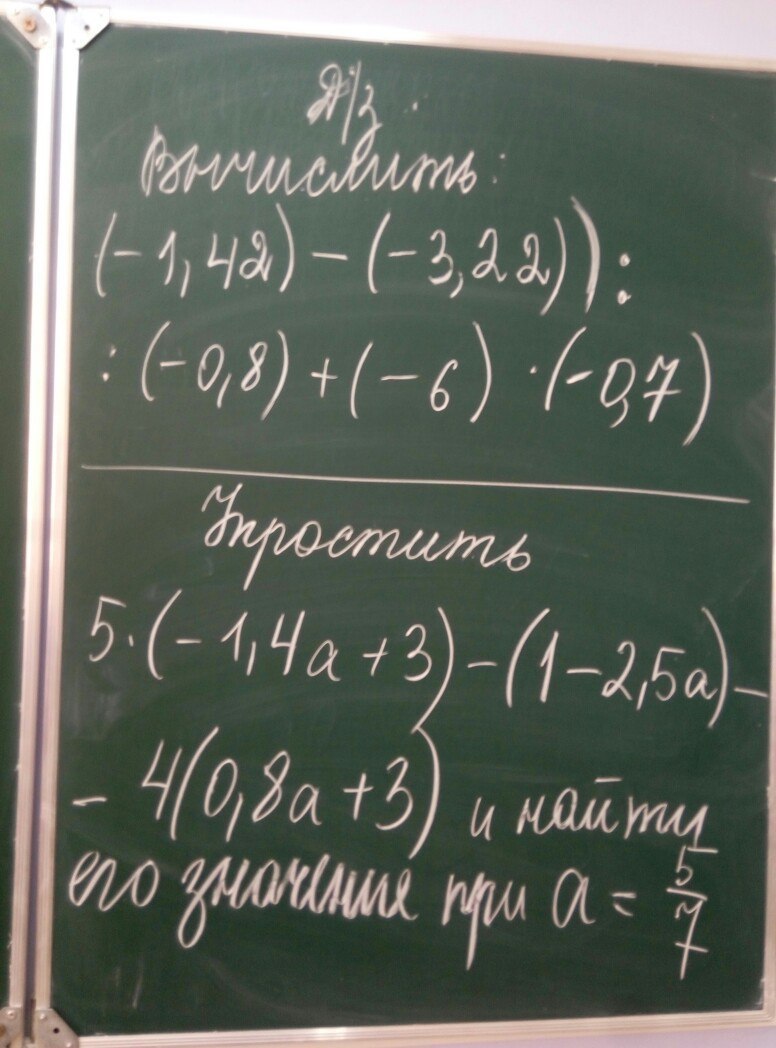 Д/з.
Вычислить:
(-1,42) - (-3,22)) :
: (-0,8) + (-6) · (-0,7)
Упростить
5·(-1,4а + 3) - (1 - 2,5а) -
- 4(0,8а + 3) и найти
его значение при а = 5/7